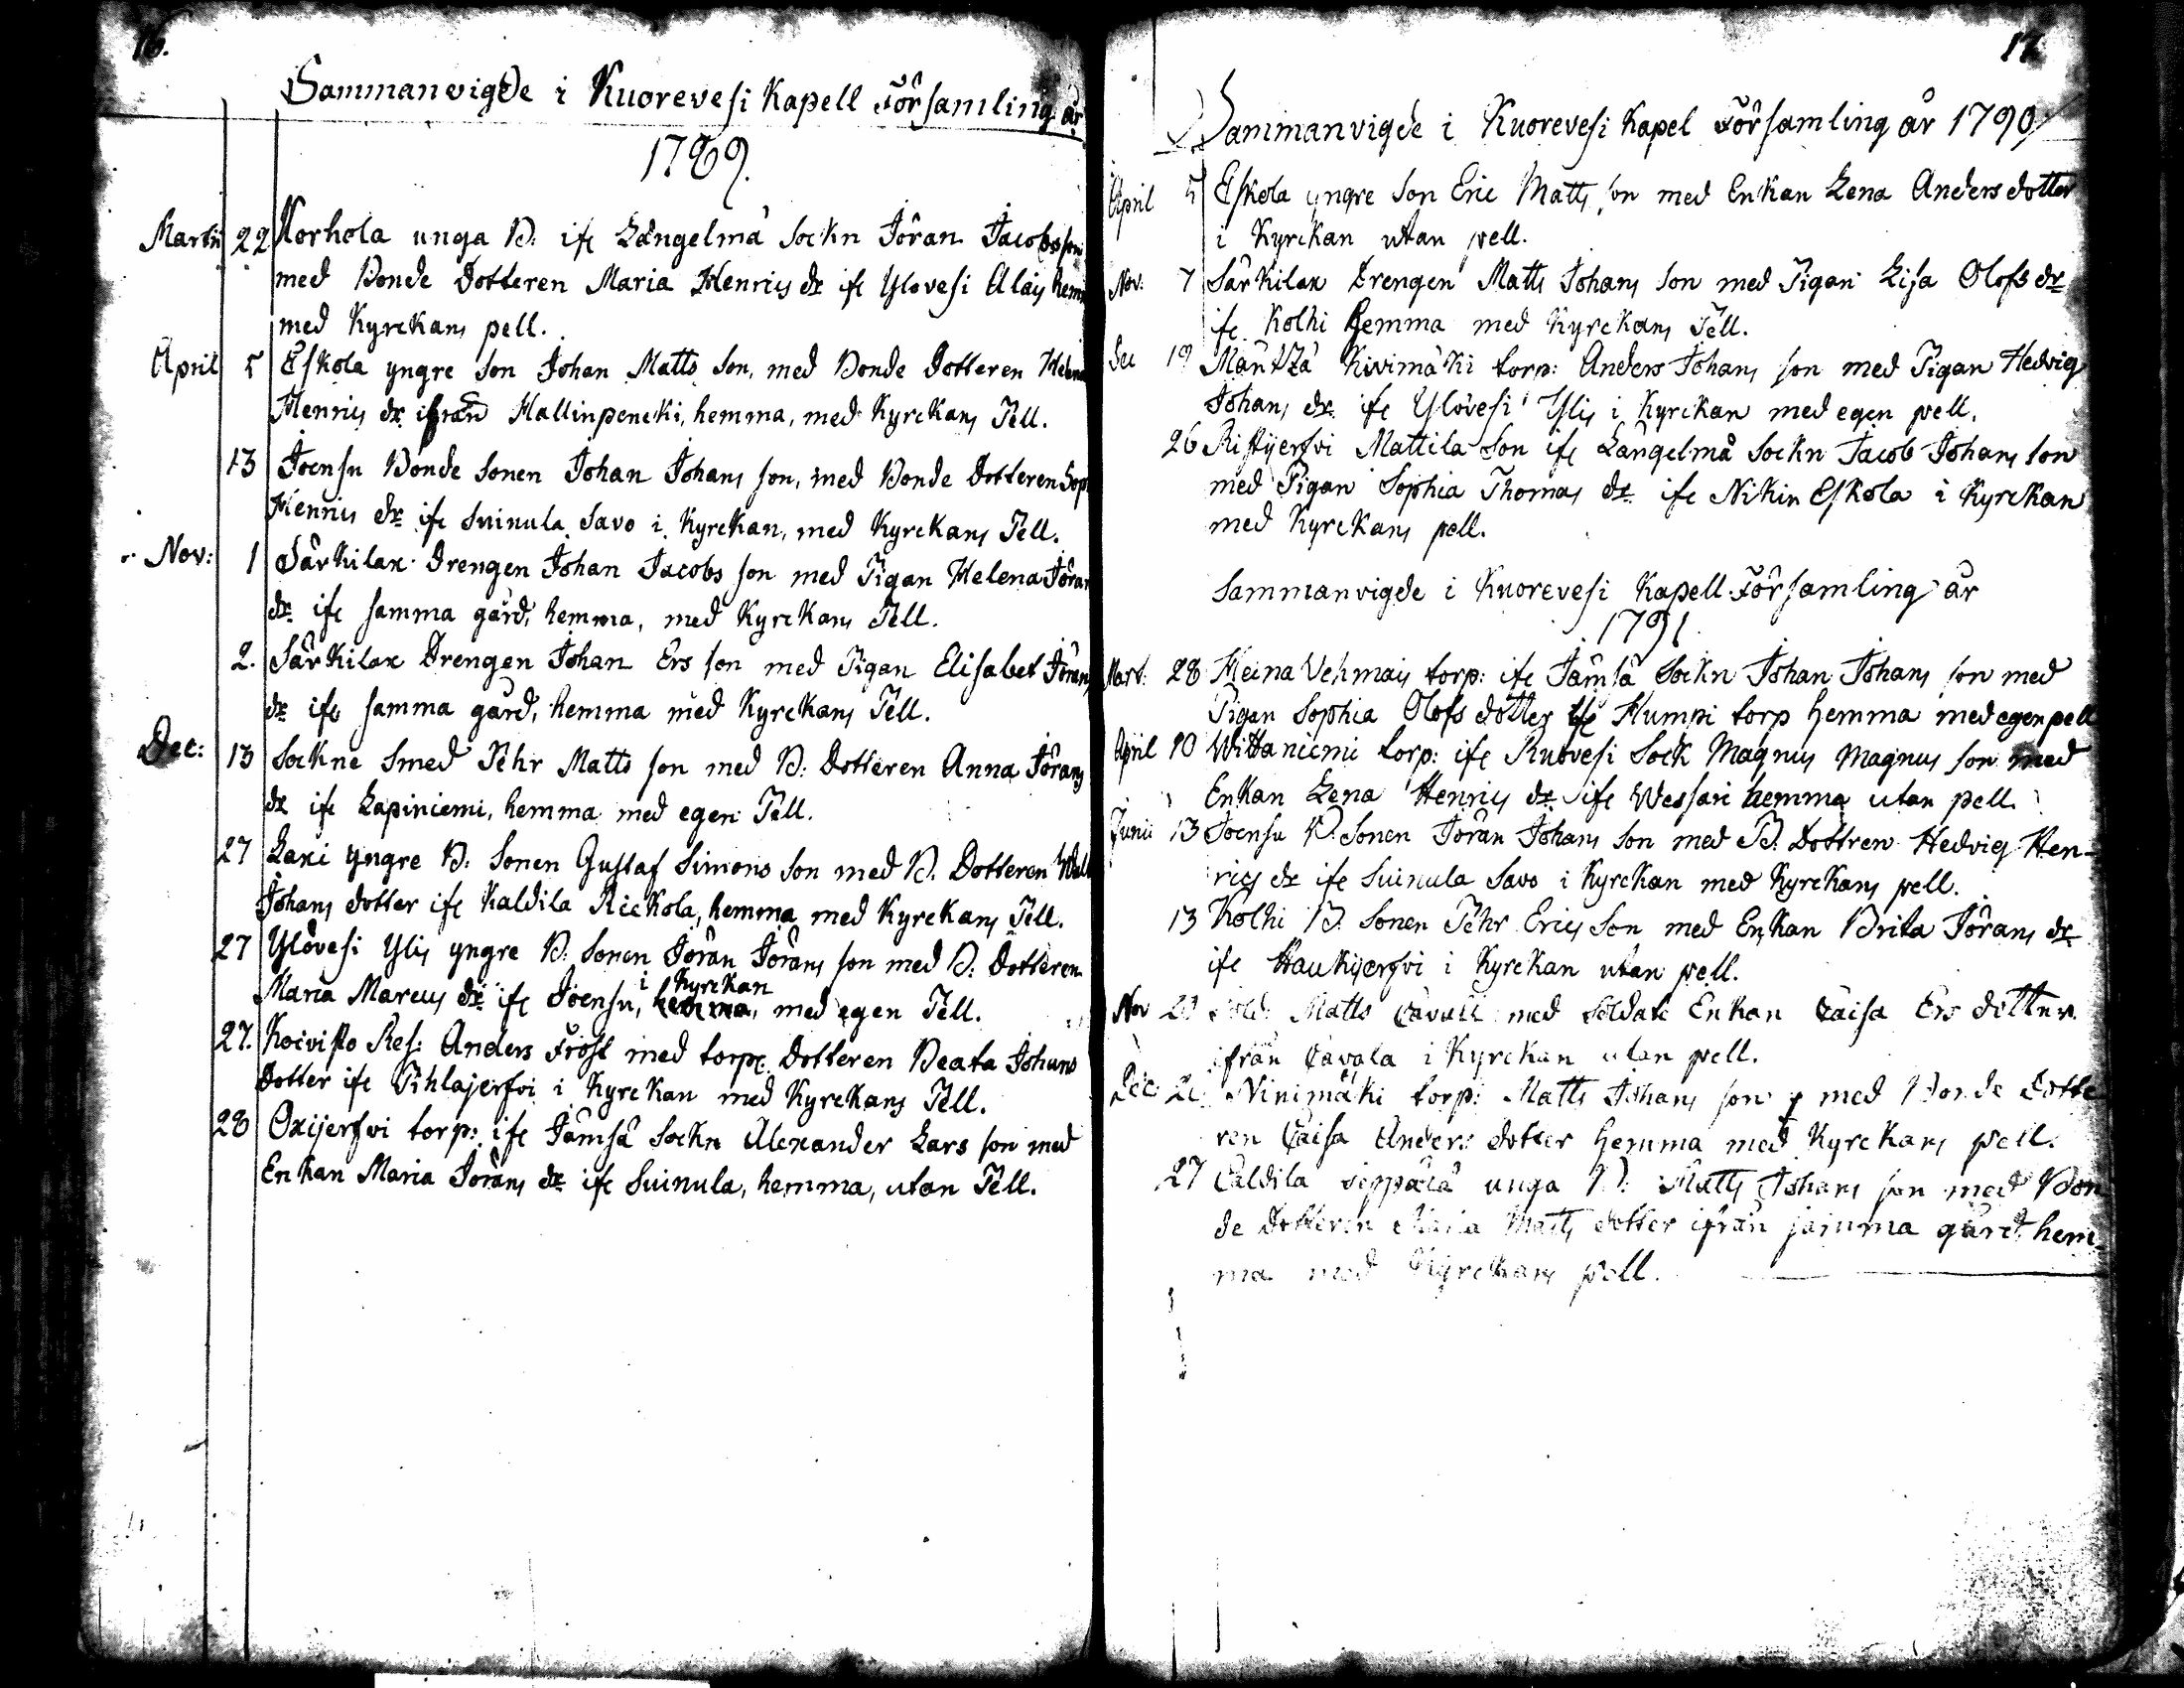 16.
Sammanvigde i Kuorevesi Kapell Församling år
1789.
Martii 22 Korhola unga B: ifr Längelmä Sockn Jöran Jacobsson
med Bonde Dotteren Maria Henrics dr ifr Ylövesi Alais hem
med Kyrckans pell.
April 5 Eskola yngre Son Johan Matts Son, med Bonde Dotteren Helena
Henrics dr ifrån Hallinpencki, hemma, med Kyrckans Pell.
13 Joensu Bonde Sonen Johan Johans son, med Bonde Dotteren Sop
Henrics dr ifr Suinula Savo i Kyrckan, med Kyrckans Pell.
Nov: 1 Särkilax Drengen Johan Jacobs son med Pigan Helena Jöran
dr ifr samma gård, hemma, med Kyrckans Pell.
2. Särkilax Drengen Johan Ers son med Pigan Elisabet Jörans
dr ifr samma gård, hemma med Kyrckans Pell.
Dec: 13 Sockne Smed Pehr Matts son med B: Dotteren Anna Jörans
dr ifr Lapiniemi, hemma med egen Pell.
27 Laxi yngre B: Sonen Gustaf Simons Son med B. Dotteren
Johans dotter ifr Kaldila Rickola, hemma med Kyrckans Pell.
27 Ylövesi Ylis yngre B: Sonen Jöran Jörans son med B: Dotteren
i Kyrckan
Maria Marcus dr ifr Joensu, hemma, med egen Pell.
27. Koivisto Res: Anders Frost med torpr Dotteren Beata Johans
Dotter ifr Pihlajerfvi i Kyrckan med Kyrckans Pell.
28 Oxijerfvi torp: ifr Jämsä Sockn Alexander Lars son med
Enkan Maria Jörans dr ifr Suinula, hemma, utan Pell.
17
Sammanvigde i Kuorevesi Kapel Församling år 1790
April 5 Eskola yngre Son Eric Matts son med Enkan Lena Anders dotter
i Kyrckan utan pell.
Nov: 7 Särkilax Drengen Matts Johans Son med Pigan Lisa Olofs dr
ifr Kolhi Hemma med Kyrckans Pell.
Dec 19 Mäntzä Kivimäki torp: Anders Johans son med Pigan Hedvig
Johans dr ifr Ylövesi Ylis i Kyrckan med egen pell.
26 Ristijerfvi Mattila Son ifr Längelmä Sockn Jacob Johans son
med Pigan Sophia Thomas dr ifr Nikin Eskola i Kyrckan
med Kyrckans pell.
Sammanvigde i Kuorevesi Kapell Församling år
1791
Mart: 28 Heina Vehmais torp: ifr Jämsä Sockn Johan Johans son med
Pigan Sophia Olofs dotter ifr Humpi torp Hemma med egen pell
April 10 Wittaniemi torp: ifr Ruovesi Sock Magnus Magnus son med
Enkan Lena Henrics dr ifr Wessari hemma utan pell.
Junii 13 Joensu B: Sonen Jöran Johans Son med B. Dottren Hedvig Hen-
rics dr ifr Suinula Savo i Kyrckan med Kyrckans pell.
13 Kolhi B. Sonen Pehr Erics Son med Enkan Brita Jörans dr
ifr Haukijerfvi i Kyrckan utan pell.
Nov 20 Sold: Matts Cavall med Soldats Enkan Caisa Ers dotter
ifrån Cavala i Kyrckan utan pell.
Dec: Ninimäki torp: Matts Johans son med Bonde Dotte
ren Caisa Anders dotter Hemma med Kyrckans pell.
27 Caldila Seppälä unga B: Matts Johans son med Bon
de Dotteren Maria Matts dotter ifrån samma gård hem-
ma med Kyrckans pell.